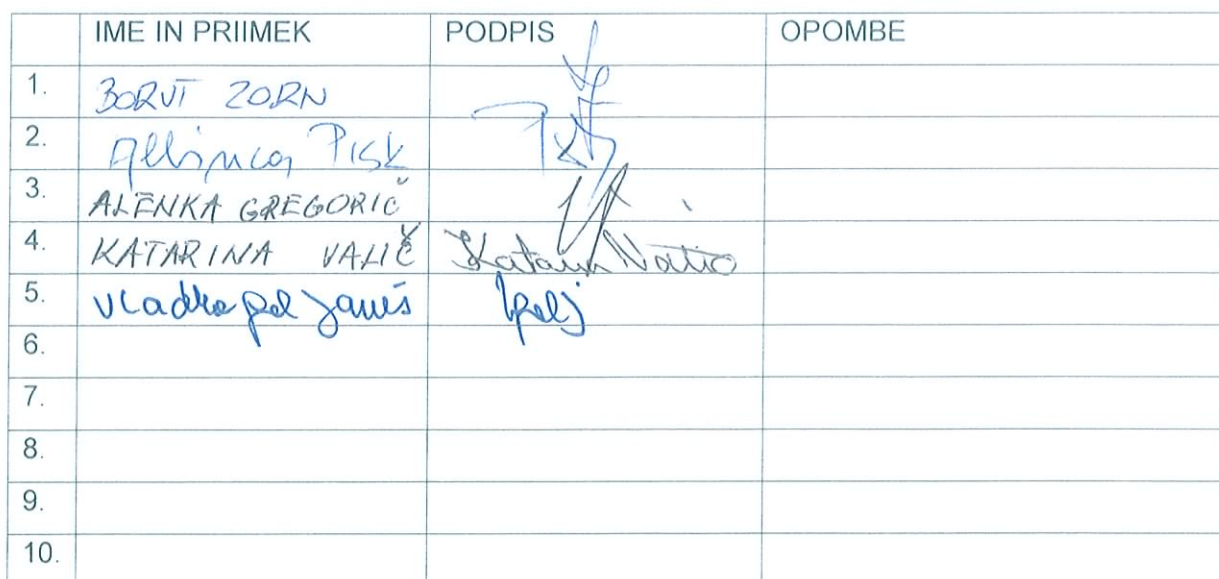 IME IN PRIIMEK PODPIS OPOMBE
1. BORUT ZORN
2. Pisk
3. ALENKA GREGORIČ
4. KATARINA VALIČ Katarina Valič
5. Vladka Janeš
6.
7.
8.
9.
10.